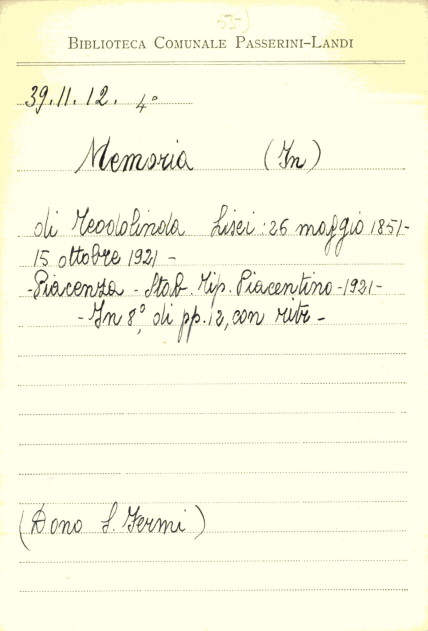 53-)
BIBLIOTECA COMUNALE PASSERINI-LANDI
39.11.12. 4°
Memoria (In)
di Teodolinda Lisei : 26 maggio 1851-
15 ottobre 1921 -
-Piacenza - Stab. Tip. Piacentino -1921-
- In 8°, di pp. 12, con ritr -
(Dono S. Fermi)